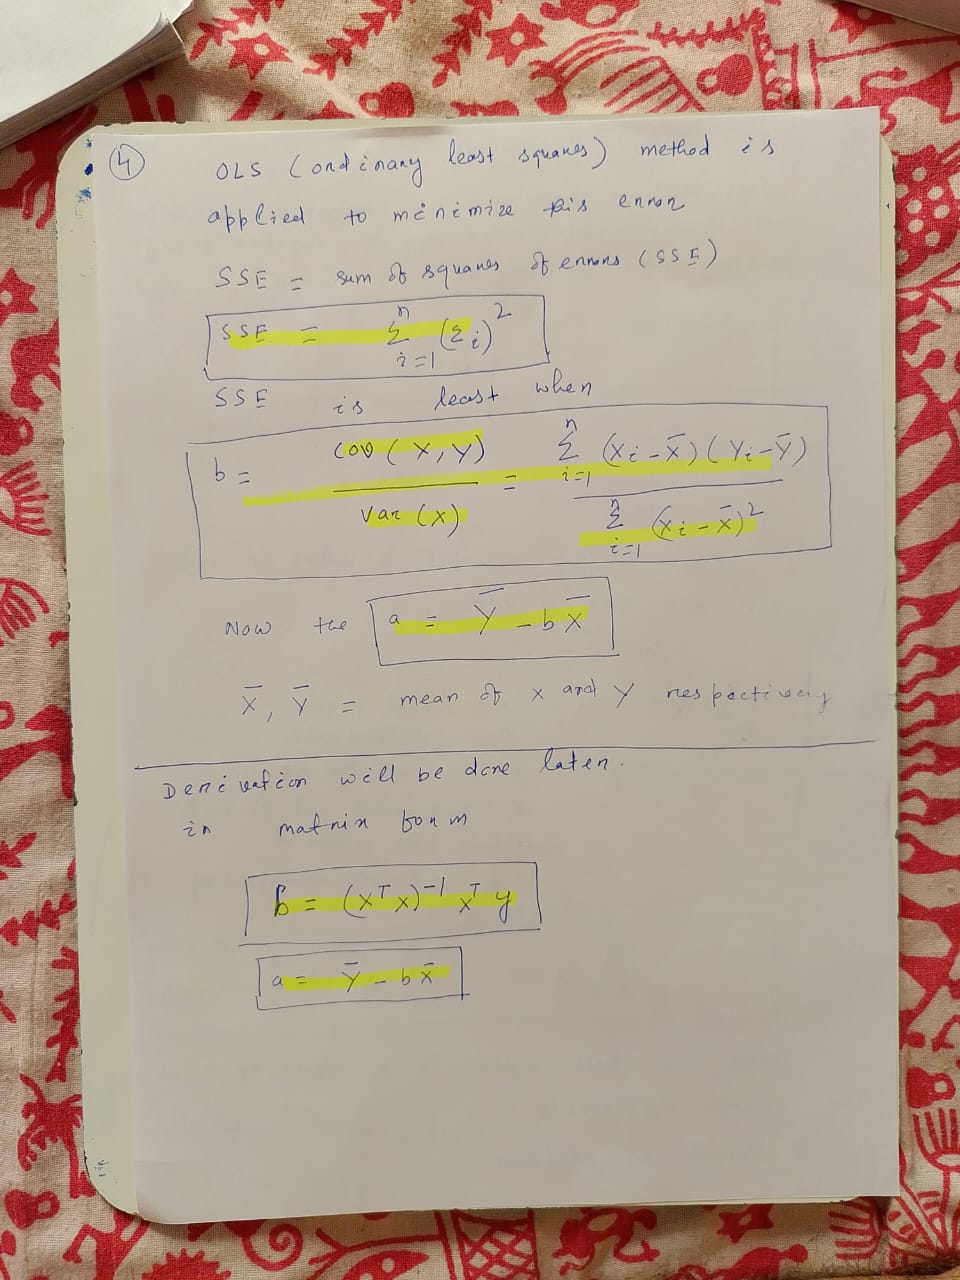 4
OLS (ordinary least squares) method is
applied to minimize this error
SSE = sum of squares of errors (SSE)
SSE = Σ_{i=1}^{n} (ε_i)^2
SSE is least when
b = cov(X,Y) / Var(X) = Σ_{i=1}^{n} (X_i - X̄)(Y_i - Ȳ) / Σ_{i=1}^{n} (X_i - X̄)^2
Now the a = Ȳ - b X̄
X̄, Ȳ = mean of X and Y respectively
Derivation will be done later.
in matrix form
b = (X^T X)^{-1} X^T y
a = Ȳ - b X̄